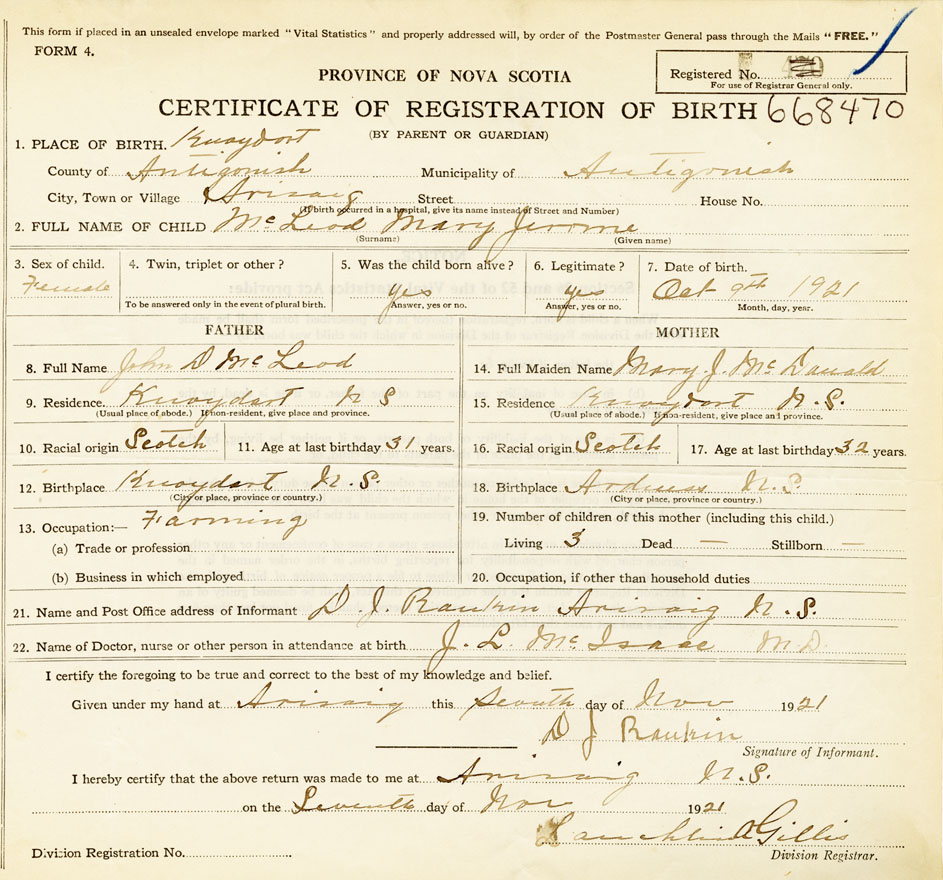 This form if placed in an unsealed envelope marked "Vital Statistics" and properly addressed will, by order of the Postmaster General pass through the Mails "FREE."
FORM 4.
Registered No.
For use of Registrar General only.
PROVINCE OF NOVA SCOTIA
CERTIFICATE OF REGISTRATION OF BIRTH 668470
(BY PARENT OR GUARDIAN)
1. PLACE OF BIRTH. Knoydart
County of Antigonish Municipality of Antigonish
City, Town or Village Arisaig Street House No.
(If birth occurred in a hospital, give its name instead of Street and Number)
2. FULL NAME OF CHILD Mc Leod Mary Jerome
(Surname) (Given name)
3. Sex of child. 4. Twin, triplet or other? 5. Was the child born alive? 6. Legitimate? 7. Date of birth.
Female yes yes Oct 9th 1921
To be answered only in the event of plural birth. Answer, yes or no. Answer, yes or no. Month, day, year.
FATHER
8. Full Name John D McLeod
9. Residence. Knoydart N S
(Usual place of abode.) If non-resident, give place and province.
10. Racial origin Scotch 11. Age at last birthday 31 years.
12. Birthplace Knoydart N.S.
(City or place, province or country.)
13. Occupation:— Farming
(a) Trade or profession
(b) Business in which employed
MOTHER
14. Full Maiden Name Mary J. McDonald
15. Residence Knoydart N.S.
(Usual place of abode.) If non-resident, give place and province.
16. Racial origin Scotch 17. Age at last birthday 32 years.
18. Birthplace Ardness N.S.
(City or place, province or country.)
19. Number of children of this mother (including this child.)
Living 3 Dead — Stillborn —
20. Occupation, if other than household duties
21. Name and Post Office address of Informant D. J. Rankin Arisaig N.S.
22. Name of Doctor, nurse or other person in attendance at birth J. L. McIsaac M.D.
I certify the foregoing to be true and correct to the best of my knowledge and belief.
Given under my hand at Arisaig this Seventh day of Nov 1921
D J Rankin
Signature of Informant.
I hereby certify that the above return was made to me at Arisaig N.S.
on the Seventh day of Nov 1921
Lauchlin A Gillis
Division Registrar.
Division Registration No.